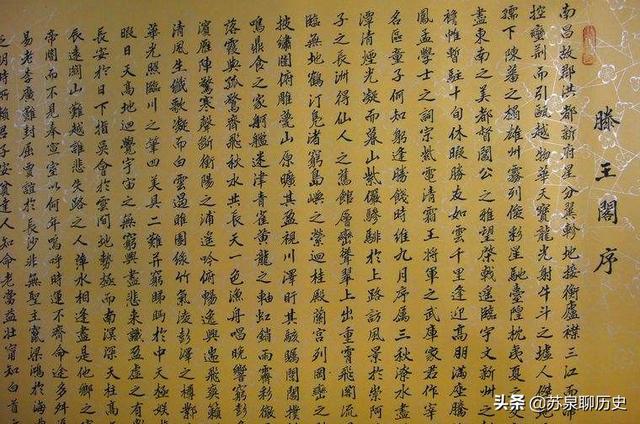 滕王閣序
南昌故郡洪都新府星分翼軫地接衡廬襟三江而
控蠻荊而引甌越物華天寶龍光射牛斗之墟人傑地
孺下陳蕃之榻雄州霧列俊彩星馳臺隍枕夷夏之
盡東南之美都督閻公之雅望棨戟遙臨宇文新州之
襜帷暫駐十旬休暇勝友如雲千里逢迎高朋滿座騰
鳳孟學士之詞宗紫電清霜王將軍之武庫家君作宰
名區童子何知躬逢勝餞時維九月序屬三秋潦水盡
潭清煙光凝而暮山紫儼驂騑於上路訪風景於崇阿
子之長洲得仙人之舊館層巒聳翠上出重霄飛閣流
臨無地鶴汀鳧渚窮島嶼之縈迴桂殿蘭宮列岡巒之
披繡闥俯雕甍山原曠其盈視川澤盱其駭矚閭閻撲
鳴鼎食之家舸艦迷津青雀黃龍之軸虹銷雨霽彩徹
落霞與孤鶩齊飛秋水共長天一色漁舟唱晚響窮彭
濱雁陣驚寒聲斷衡陽之浦遙吟俯暢逸興遄飛爽籟
清風生纖歌凝而白雲遏睢園綠竹氣凌彭澤之樽鄴
華光照臨川之筆四美具二難并窮睇眄於中天極娛
暇日天高地迥覺宇宙之無窮興盡悲來識盈虛之有
長安於日下指吳會於雲間地勢極而南溟深天柱高
辰遠關山難越誰悲失路之人萍水相逢盡是他鄉之
帝閽而不見奉宣室以何年嗚呼時運不齊命途多舛
易老李廣難封屈賈誼於長沙非無聖主竄梁鴻於海
之明時所賴君子安貧達人知命老當益壯寧知白首
头条 @苏泉聊历史